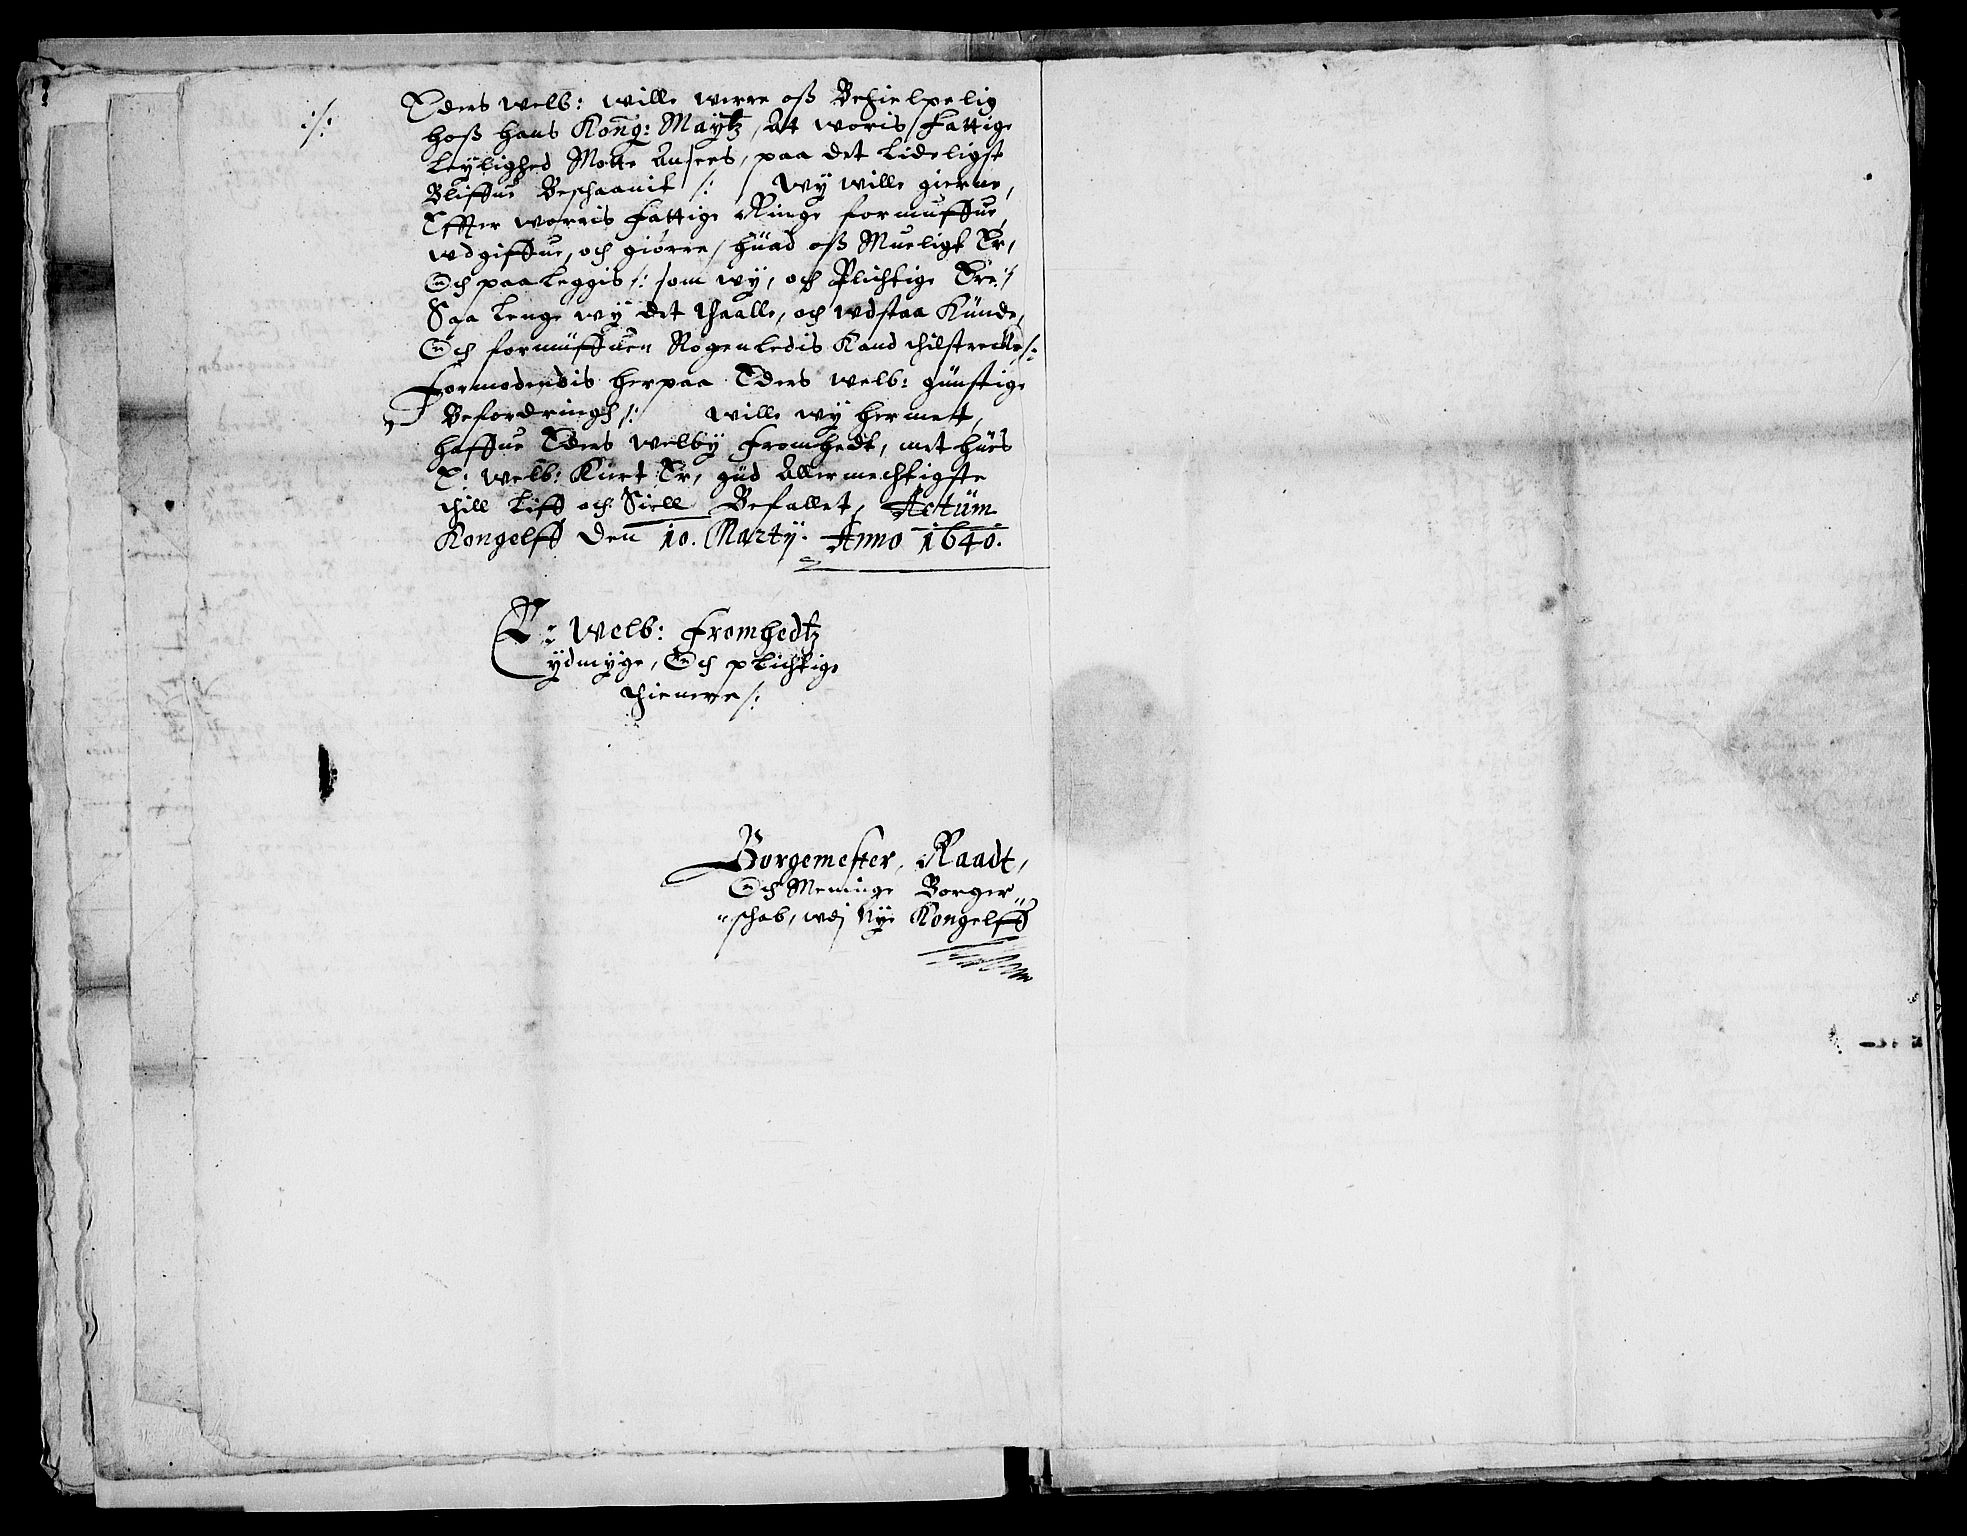 ./.
Eders welb: wille werre oß Behielpelig
hoß hans Kong: Maytz, At woris fattige
Leylighed Motte Ansees, paa det Lideligst
Bliffue Beschaanit /: Wy wille gierne,
Effter worris fattige Ringe formuffue,
wdgiffue, och giörre, huad oß Mueligt Er,
Och paa Leggis /: som wy, och Plichtige Ere /
Saa Lenge wy det thaalle, och wdstaa Kunde,
Och formuffuen Nogenledis Kand thilstrecke /:
Formodendis herpaa Eders welb: gunstige
Befordringh /: wille wy hermet,
haffue Eders welby fromhedt, met hues
E: welb: Kiert Er, gud Allermechtigste
thill Liff och Siell Befallet, Actum
Kongelff Den 10. Marty. Anno 1640.
E: Welb: fromhedtz
ydmyge, Och plichtige
thienere /:
Borgemester, Raadt,
Och Meninge Borger"
"schab, wdj Nye Kongelff